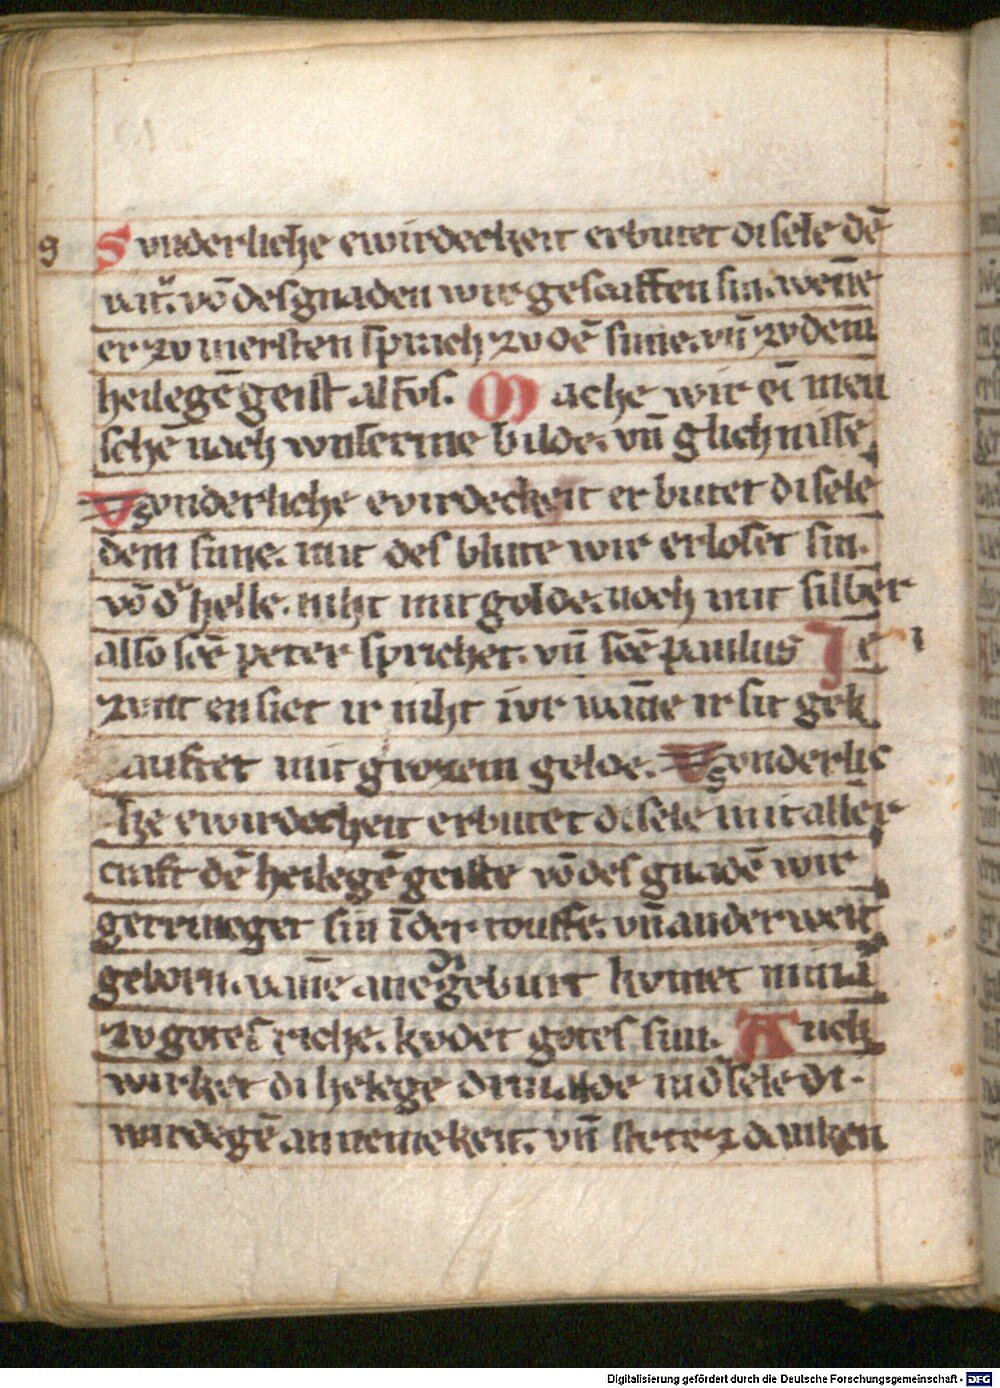 g Sunderliche ewirdecheit erbutet di sele dē
vatͬ. vō des gnaden wir gescaffen sin. wenne
er zv mersten sprach zv dē sune. vn̄ zv dem
heilegē geist alsvs. Mache wir eī men
schē nach vnserme bilde. vn̄ glichnisse.
Vsonderliche ewirdecheit er butet di sele
dem sune. mit des blute wir erloset sin.
vō dͬ helle. niht mit golde. noch mit silber
also sc̄e peter sprichet. vn̄ sc̄e paulus Je
zvnt en siet ir niht ivr wāne ir sit gek
auftet mit grozem gelde. Vsonderlic
he ewirdecheit erbutet di sele mit aller
craft dē heilegē geiste vō des gnadē wir
gereineget sin ī der touffe. vn̄ anderweit
geborn. wāne ane di geburt kvmet niman
zv gotes riche. kvdet gotes sun. Auch
wirket di helege drivalde in dͬ sele di
wirdegē anneme keit. vn̄ stetez danken
Digitalisierung gefördert durch die Deutsche Forschungsgemeinschaft - DFG